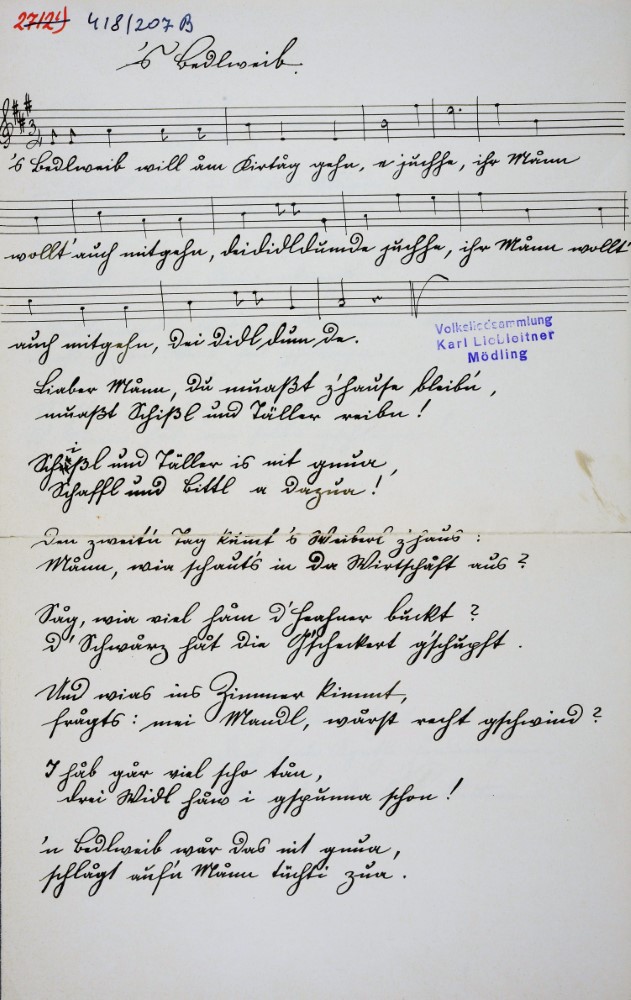 418/207 B
's Bedlweib.
's Bedlweib will åm Kirtåg gehn, e juchhe, ihr Månn
wollt' auch mitgehn, deididldumde juchhe, ihr Månn wollt'
auch mitgehn, dei didl dum de.
Volksliedsammlung
Karl Liebleitner
Mödling
Liaber Månn, du muaßt z'hause bleib'n,
muaßt Schißl und Täller reibn!
Schißl und Täller is nit gnua,
Schaffl und Bittl a dazua!
Den zweit'n Tag kimt 's Weiberl z'haus:
Månn, wia schaut's in da Wirtschåft aus?
Såg, wia viel håm d'Heahner buckt?
d' Schwårz håt die G'scheckert g'schupft.
Und wias ins Zimmer kimmt,
frågts: mei Mandl, wårst recht gschwind?
I håb går viel scho tån,
drei Widl håw i gspunna schon!
'n Bedlweib wår das nit gnua,
schlågt auf'n Månn tüchti zua.